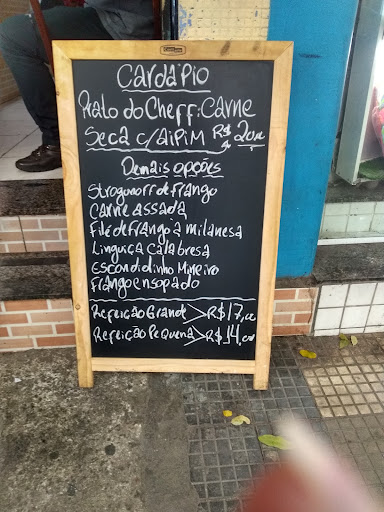 Cardápio
Prato do Cheff: Carne
Seca c/ aiPiM R$ 20,00
Demais opções
Strogonoff de frango
Carne assada
Filé de frango à milanesa
Linguiça Calabresa
Escondidinho Mineiro
Frango ensopado
Refeição Grande > R$ 17,00
Refeição Pequena > R$ 14,00